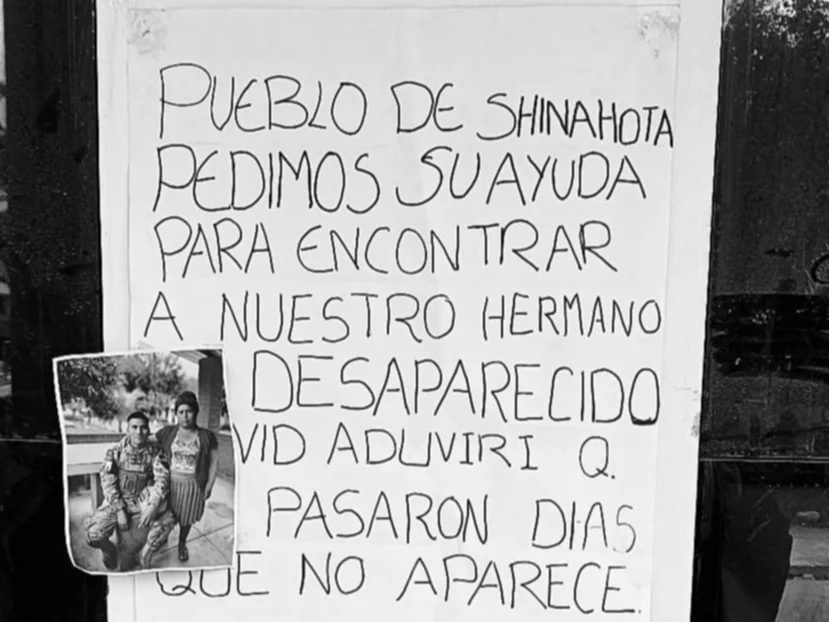 PUEBLO DE SHINAHOTA
PEDIMOS SU AYUDA
PARA ENCONTRAR
A NUESTRO HERMANO
DESAPARECIDO
VID ADUVIRI Q.
PASARON DIAS
QUE NO APARECE.